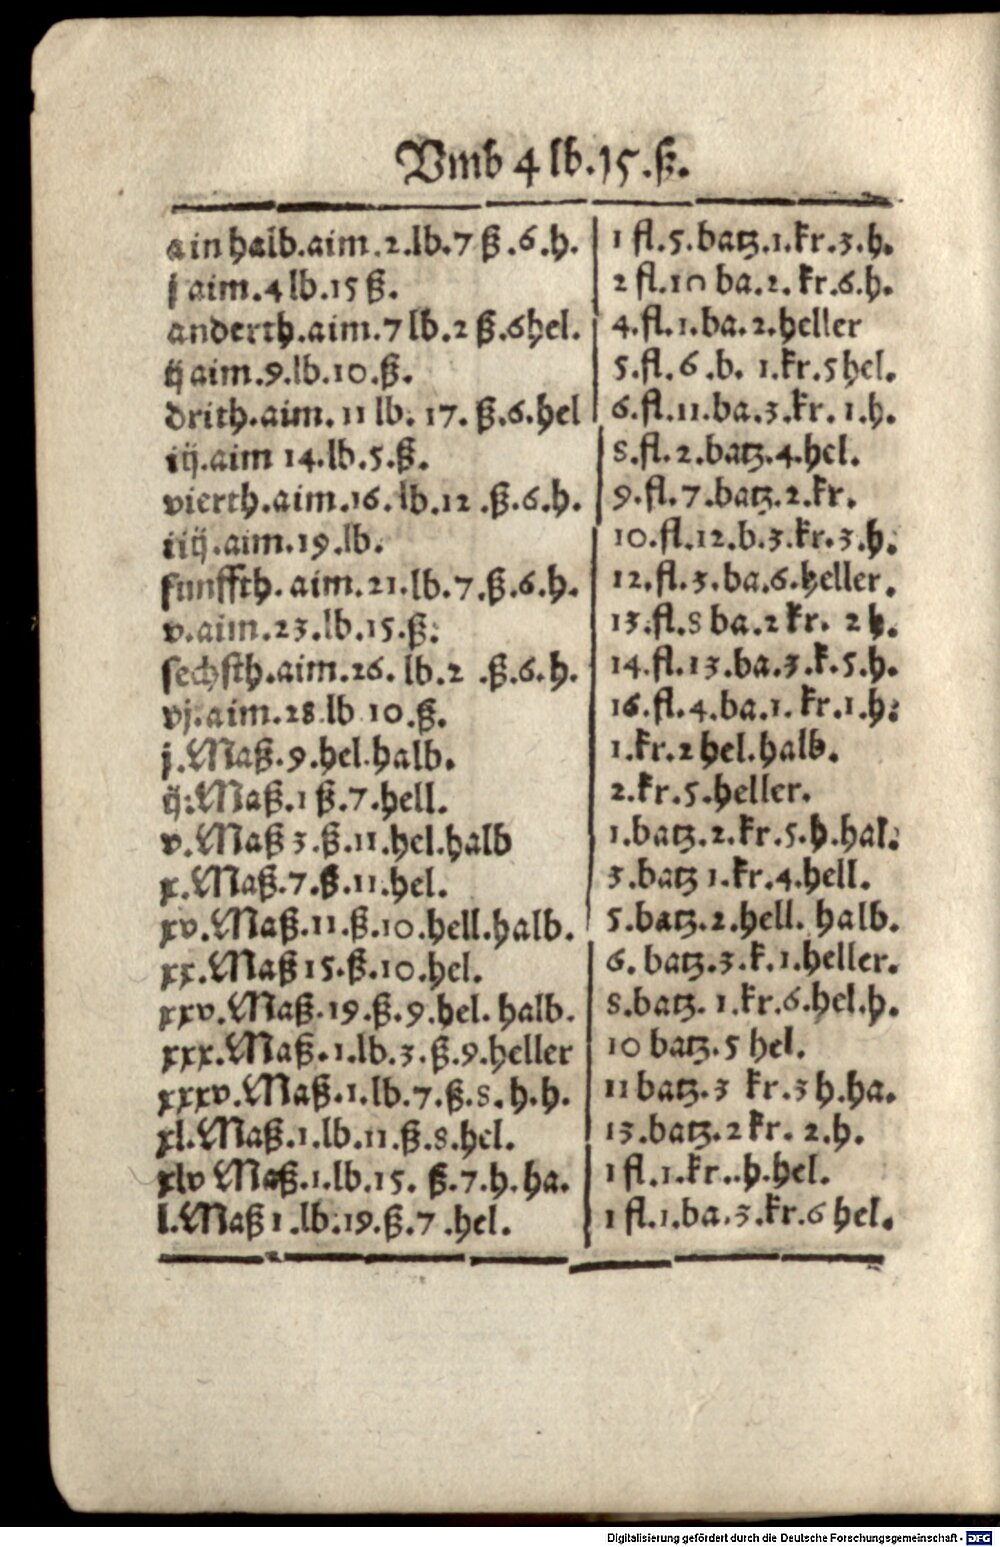 Vmb 4 lb.15.ß.
ain halb.aim.2.lb.7 ß.6.h. 1 fl.5.batz.1.kr.3.h.
j aim.4 lb.15 ß. 2 fl.10 ba.2.kr.6.h.
anderth.aim.7 lb.2 ß.6hel. 4.fl.1.ba.2.heller
ij aim.9.lb.10.ß. 5.fl.6.b. 1.kr.5 hel.
drith.aim.11 lb.17.ß.6.hel 6.fl.11.ba.3.kr.1.h.
iij.aim 14.lb.5.ß. 8.fl.2.batz.4.hel.
vierth.aim.16.lb.12.ß.6.h. 9.fl.7.batz.2.kr.
iiij.aim.19.lb. 10.fl.12.b.3.kr.3.h.
funffth.aim.21.lb.7.ß.6.h. 12.fl.3.ba.6.heller.
v.aim.23.lb.15.ß: 13.fl.8 ba.2 kr. 2 h.
sechsth.aim.26.lb.2 .ß.6.h. 14.fl.13.ba.3.k.5.h.
vj.aim.28.lb 10.ß. 16.fl.4.ba.1.kr.1.h:
j.Maß.9.hel.halb. 1.kr.2 hel.halb.
ij:Maß.1 ß.7.hell. 2.kr.5.heller.
v.Maß 3.ß.11.hel.halb 1.batz.2.kr.5.h.hal:
x.Maß.7.ß.11.hel. 3.batz 1.kr.4.hell.
xv.Maß.11.ß.10.hell.halb. 5.batz.2.hell. halb.
xx.Maß 15.ß.10.hel. 6.batz.3.k.1.heller.
xxv.Maß.19.ß.9.hel.halb. 8.batz. 1.kr.6.hel.h.
xxx.Maß.1.lb.3.ß.9.heller 10 batz.5 hel.
xxxv.Maß.1.lb.7.ß.8.h.h. 11 batz.3 kr.3 h.ha.
xl.Maß.1.lb.11.ß.8.hel. 13.batz.2 kr. 2.h.
xlv Maß.1.lb.15. ß.7.h.ha. 1 fl.1.kr..h.hel.
l.Maß 1.lb:19.ß.7.hel. 1 fl.1.ba.3.kr.6 hel.
Digitalisierung gefördert durch die Deutsche Forschungsgemeinschaft - DFG